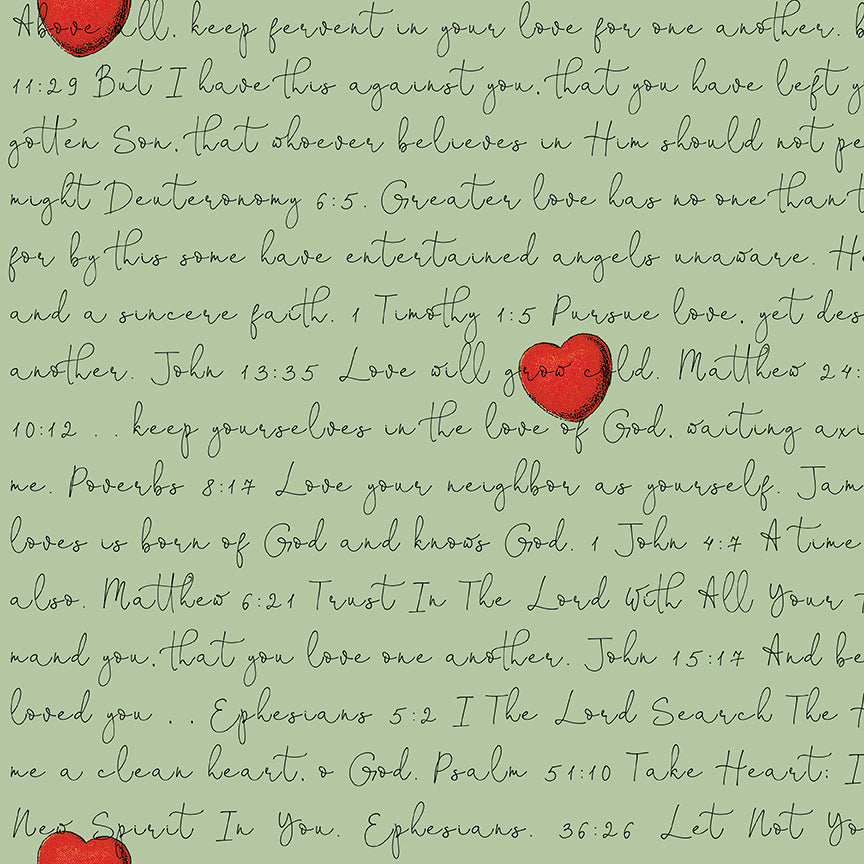 Above all, keep fervent in your love for one another.
11:29 But I have this against you, that you have left
gotten Son, that whoever believes in Him should not pe
might Deuteronomy 6:5. Greater love has no one than t
for by this some have entertained angels unaware. He
and a sincere faith. 1 Timothy 1:5 Pursue love, yet des
another. John 13:35 Love will grow cold. Matthew 24:
10:12 . . keep yourselves in the love of God, waiting axi
me. Poverbs 8:17 Love your neighbor as yourself. Jam
loves is born of God and knows God. 1 John 4:7 A time
also. Matthew 6:21 Trust In The Lord With All Your
mand you, that you love one another. John 15:17 And be
loved you . . Ephesians 5:2 I The Lord Search The
me a clean heart, o God. Psalm 51:10 Take Heart; I
New Spirit In You. Ephesians. 36:26 Let Not Yo